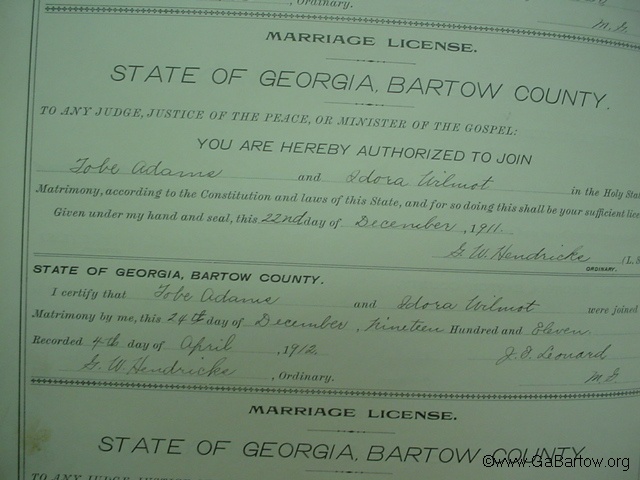 , Ordinary.
M.G.
MARRIAGE LICENSE.
STATE OF GEORGIA, BARTOW COUNTY.
TO ANY JUDGE, JUSTICE OF THE PEACE, OR MINISTER OF THE GOSPEL:
YOU ARE HEREBY AUTHORIZED TO JOIN
Tobe Adams and Idora Wilmot in the Holy Stat
Matrimony, according to the Constitution and laws of this State, and for so doing this shall be your sufficient lice
Given under my hand and seal, this 22nd day of December, 1911.
G. W. Hendricks (L. S
ORDINARY.
STATE OF GEORGIA, BARTOW COUNTY.
I certify that Tobe Adams and Idora Wilmot were joined
Matrimony by me, this 24th day of December, Nineteen Hundred and Eleven
Recorded 4th day of April, 1912. J. D. Leonard
G. W. Hendricks, Ordinary. M.G.
MARRIAGE LICENSE.
STATE OF GEORGIA, BARTOW COUNTY.
TO ANY JUDGE, JUSTICE
©www.GaBartow.org